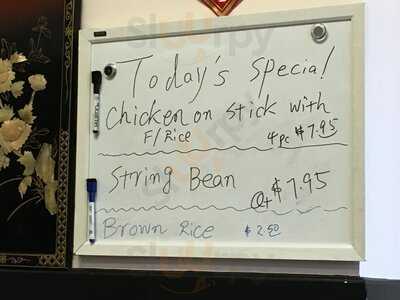 Today's Special
Chicken on Stick with
F/Rice 4pc $7.95
String Bean Qt $7.95
Brown Rice $2.50